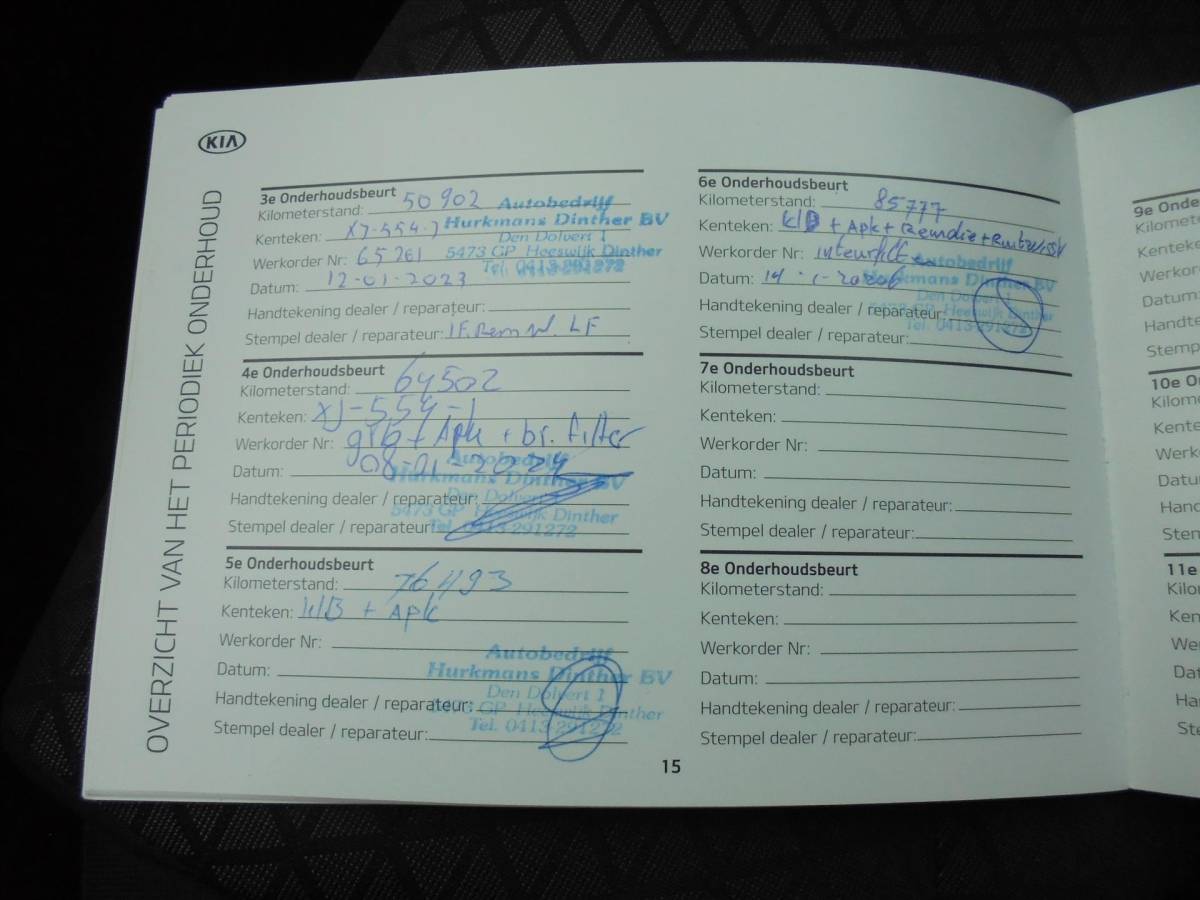 KIA
OVERZICHT VAN HET PERIODIEK ONDERHOUD
3e Onderhoudsbeurt
Kilometerstand: 50902
Kenteken: XJ-554-J
Werkorder Nr: 65261
Datum: 12-01-2023
Handtekening dealer / reparateur:
Stempel dealer / reparateur: LF
Autobedrijf
Hurkmans Dinther BV
Den Dolvert 1
5473 GP Heeswijk Dinther
Tel. 0413-291272
4e Onderhoudsbeurt
Kilometerstand: 64502
Kenteken: XJ-554-J
Werkorder Nr: grb + Apk + br. filter
Datum: 08-01-2024
Handtekening dealer / reparateur:
Stempel dealer / reparateur:
Autobedrijf
Hurkmans Dinther BV
Den Dolvert 1
5473 GP Heeswijk Dinther
Tel. 0413-291272
5e Onderhoudsbeurt
Kilometerstand:
Kenteken: + Apk
Werkorder Nr:
Datum:
Handtekening dealer / reparateur:
Stempel dealer / reparateur:
Autobedrijf
Hurkmans Dinther BV
Den Dolvert 1
5473 GP Heeswijk Dinther
Tel. 0413-291272
6e Onderhoudsbeurt
Kilometerstand: 85777
Kenteken: + Apk +
Werkorder Nr:
Datum:
Handtekening dealer / reparateur:
Stempel dealer / reparateur:
Autobedrijf
Hurkmans Dinther BV
Den Dolvert 1
5473 GP Heeswijk Dinther
Tel. 0413-291272
7e Onderhoudsbeurt
Kilometerstand:
Kenteken:
Werkorder Nr:
Datum:
Handtekening dealer / reparateur:
Stempel dealer / reparateur:
8e Onderhoudsbeurt
Kilometerstand:
Kenteken:
Werkorder Nr:
Datum:
Handtekening dealer / reparateur:
Stempel dealer / reparateur:
15
9e Ond
Kilomet
Kenteke
Werko
Datum:
Handte
Stemp
10e O
Kilom
Kente
Werk
Datu
Hand
Sten
11e
Kilo
Ken
We
Dat
Ha
Ste